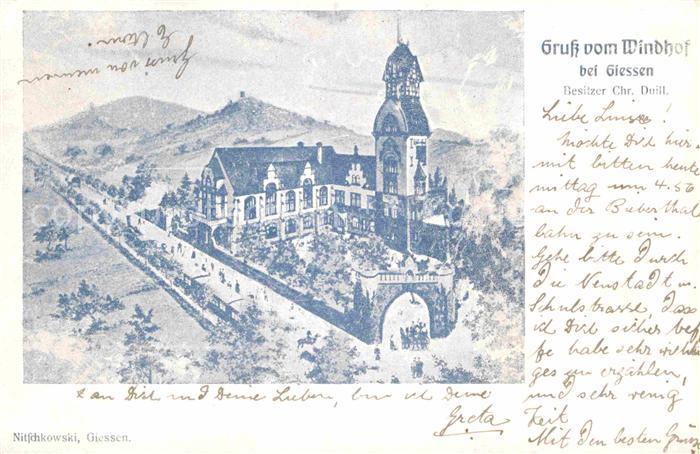 Gruß vom Windhof
bei Giessen
Besitzer Chr. Duill.
Liebe Luise!
Möchte Dich hier
mit bitten heute
mittag um 4.50
an der Bieberthal
bahn zu sein.
Gehe bitte durch
die Neustadt u.
Schulstrasse, dass
ich Dich sicher tref
fe habe sehr wichti
ges zu erzählen,
und sehr wenig
Zeit
Mit den besten Grüsse
an Dich und Deine Lieben, bin ich Deine
Greta
Gruss von meinen
Nitschkowski, Giessen.